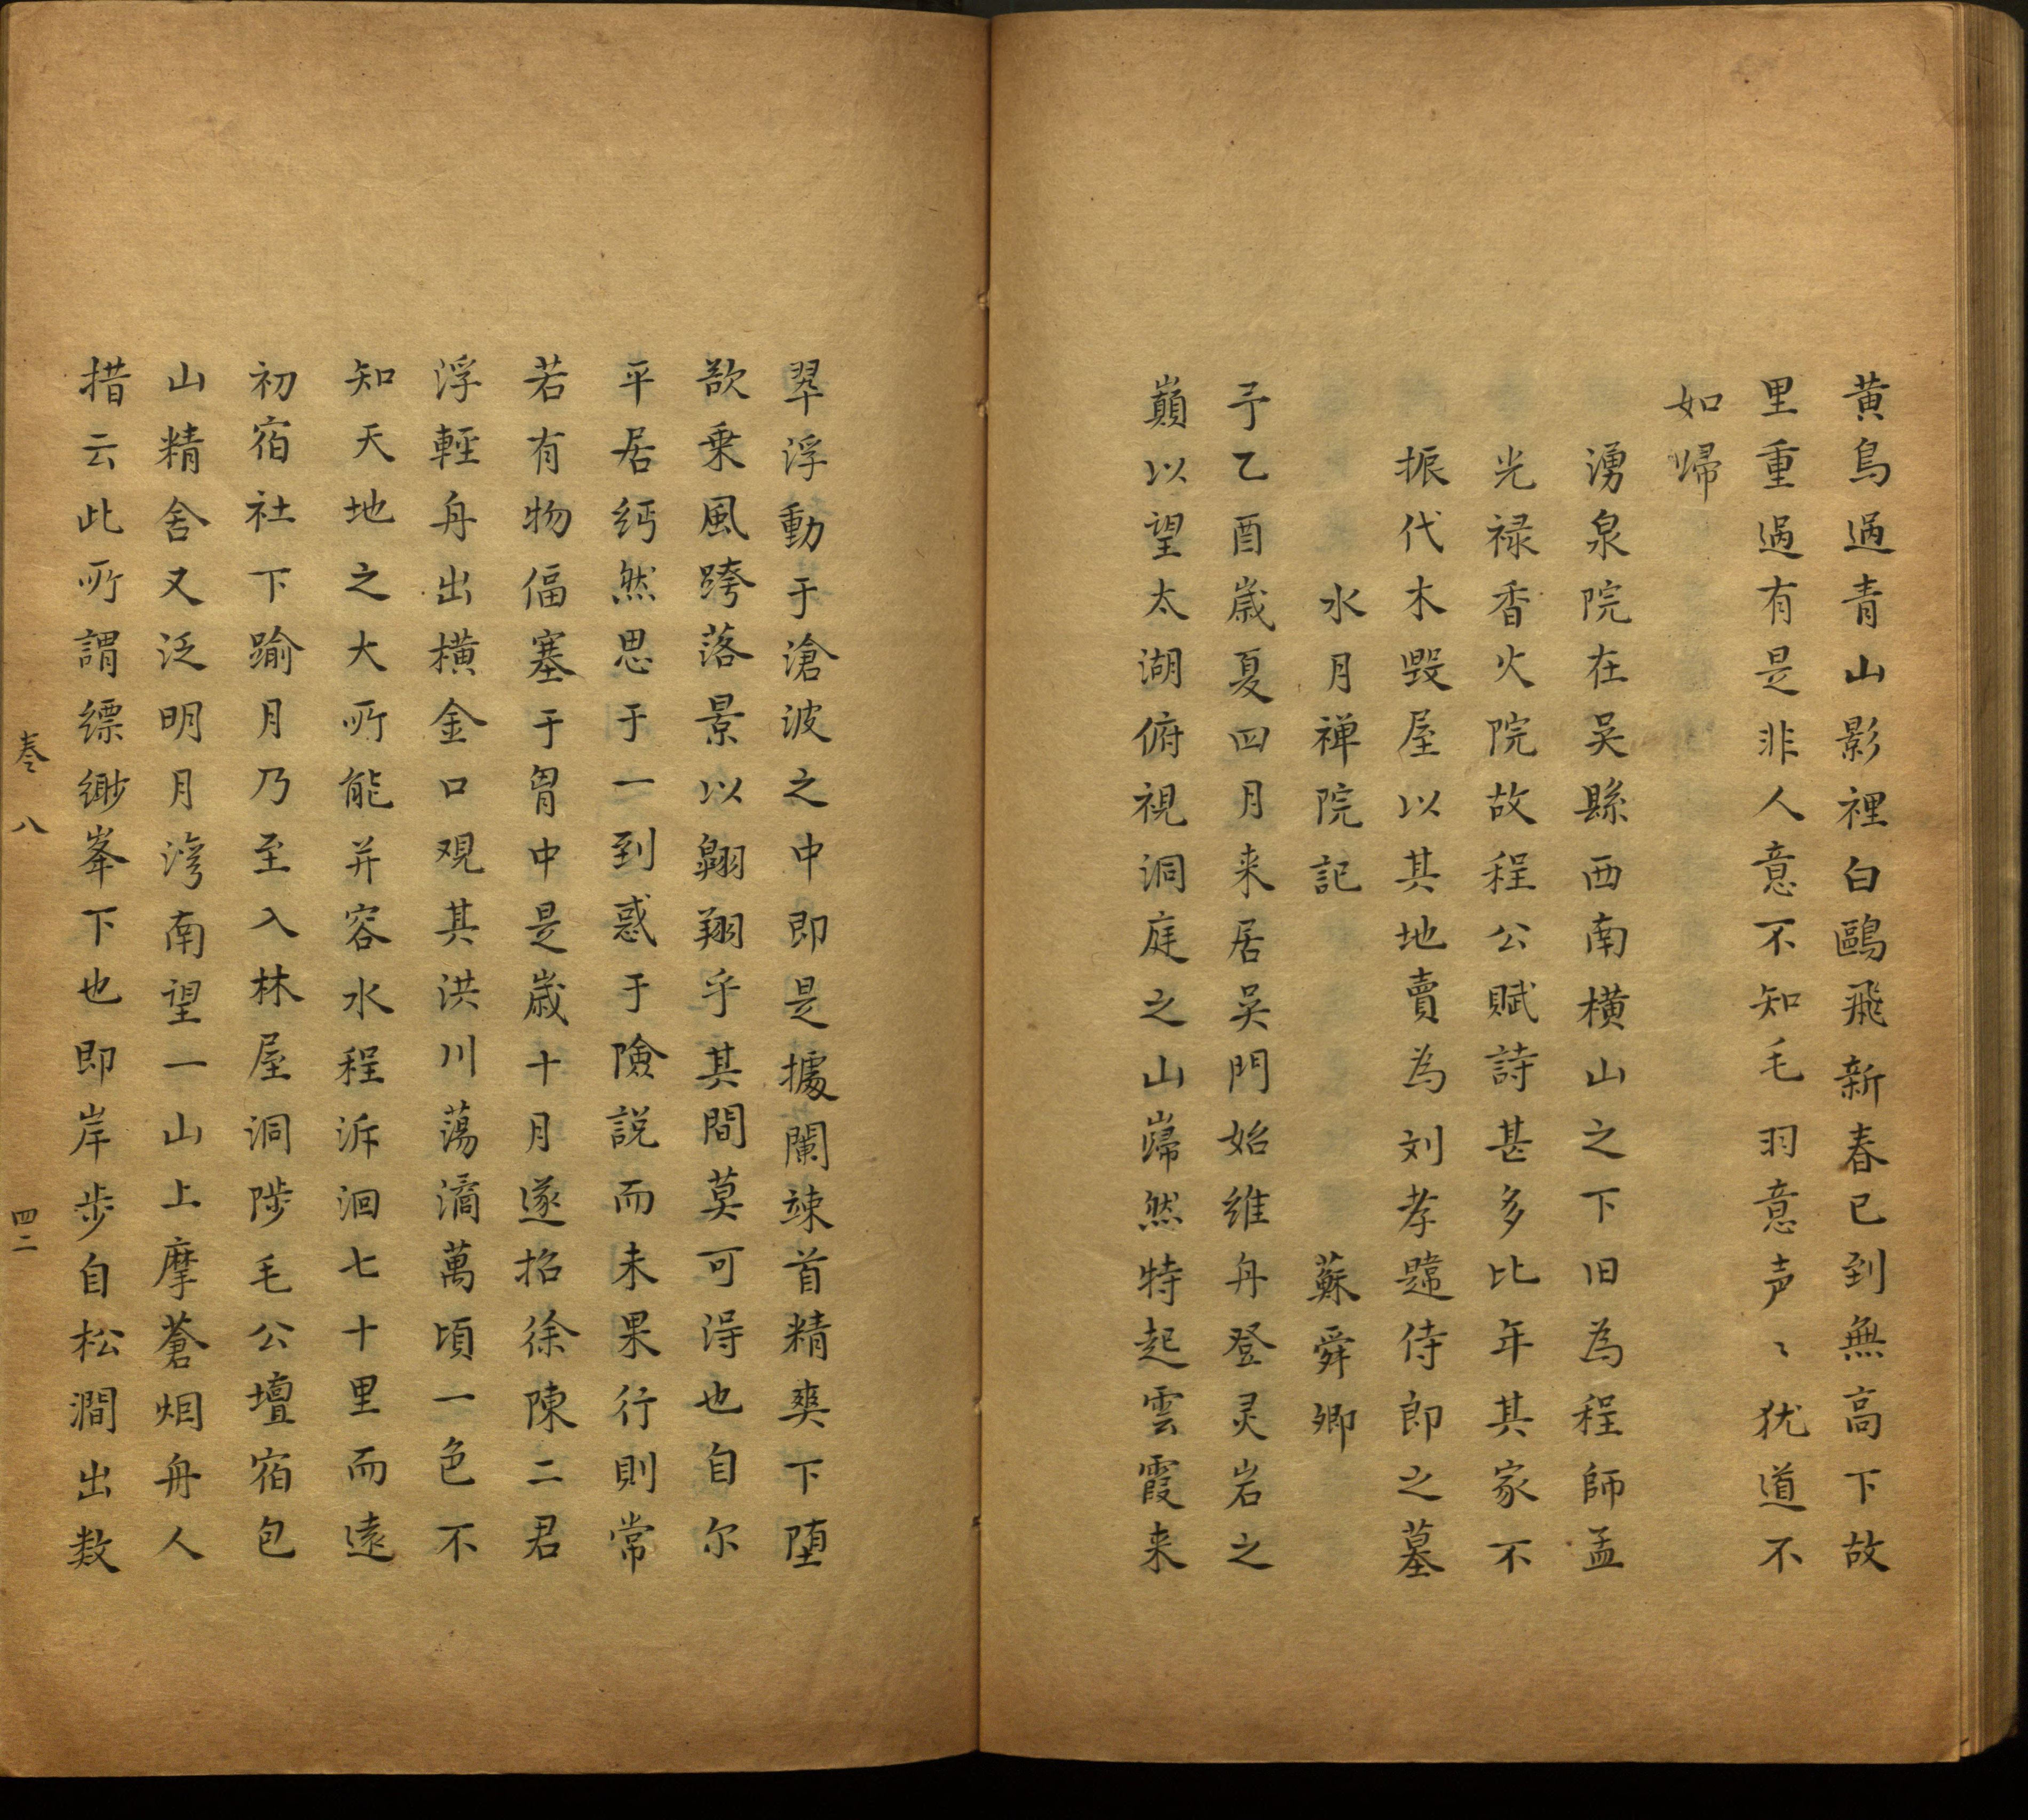 黄鳥過青山影裡白鷗飛新春已到無高下故
里重過有是非人意不知毛羽意声〻犹道不
如歸
湧泉院在吴縣西南横山之下旧為程師孟
光禄香火院故程公賦詩甚多比年其家不
振代木毀屋以其地賣為刘孝韙侍郎之墓
水月禅院記 蘇舜卿
予乙酉歲夏四月来居吴門始維舟登灵岩之
巔以望太湖俯視洞庭之山巋然特起雲霞来
翠浮動于滄波之中即是據闌竦首精爽下堕
欲乗風跨落景以翺翔乎其間莫可得也自尔
平居緬然思于一到惑于險説而未果行則常
若有物偪塞于胷中是歲十月遂招徐陳二君
浮輕舟出横金口观其洪川蕩潏萬頃一色不
知天地之大所能并容水程泝洄七十里而遠
初宿社下踰月乃至入林屋洞陟毛公壇宿包
山精舍又泛明月湾南望一山上摩蒼烟舟人
措云此所謂縹緲峯下也即岸步自松澗出数
卷八 四二